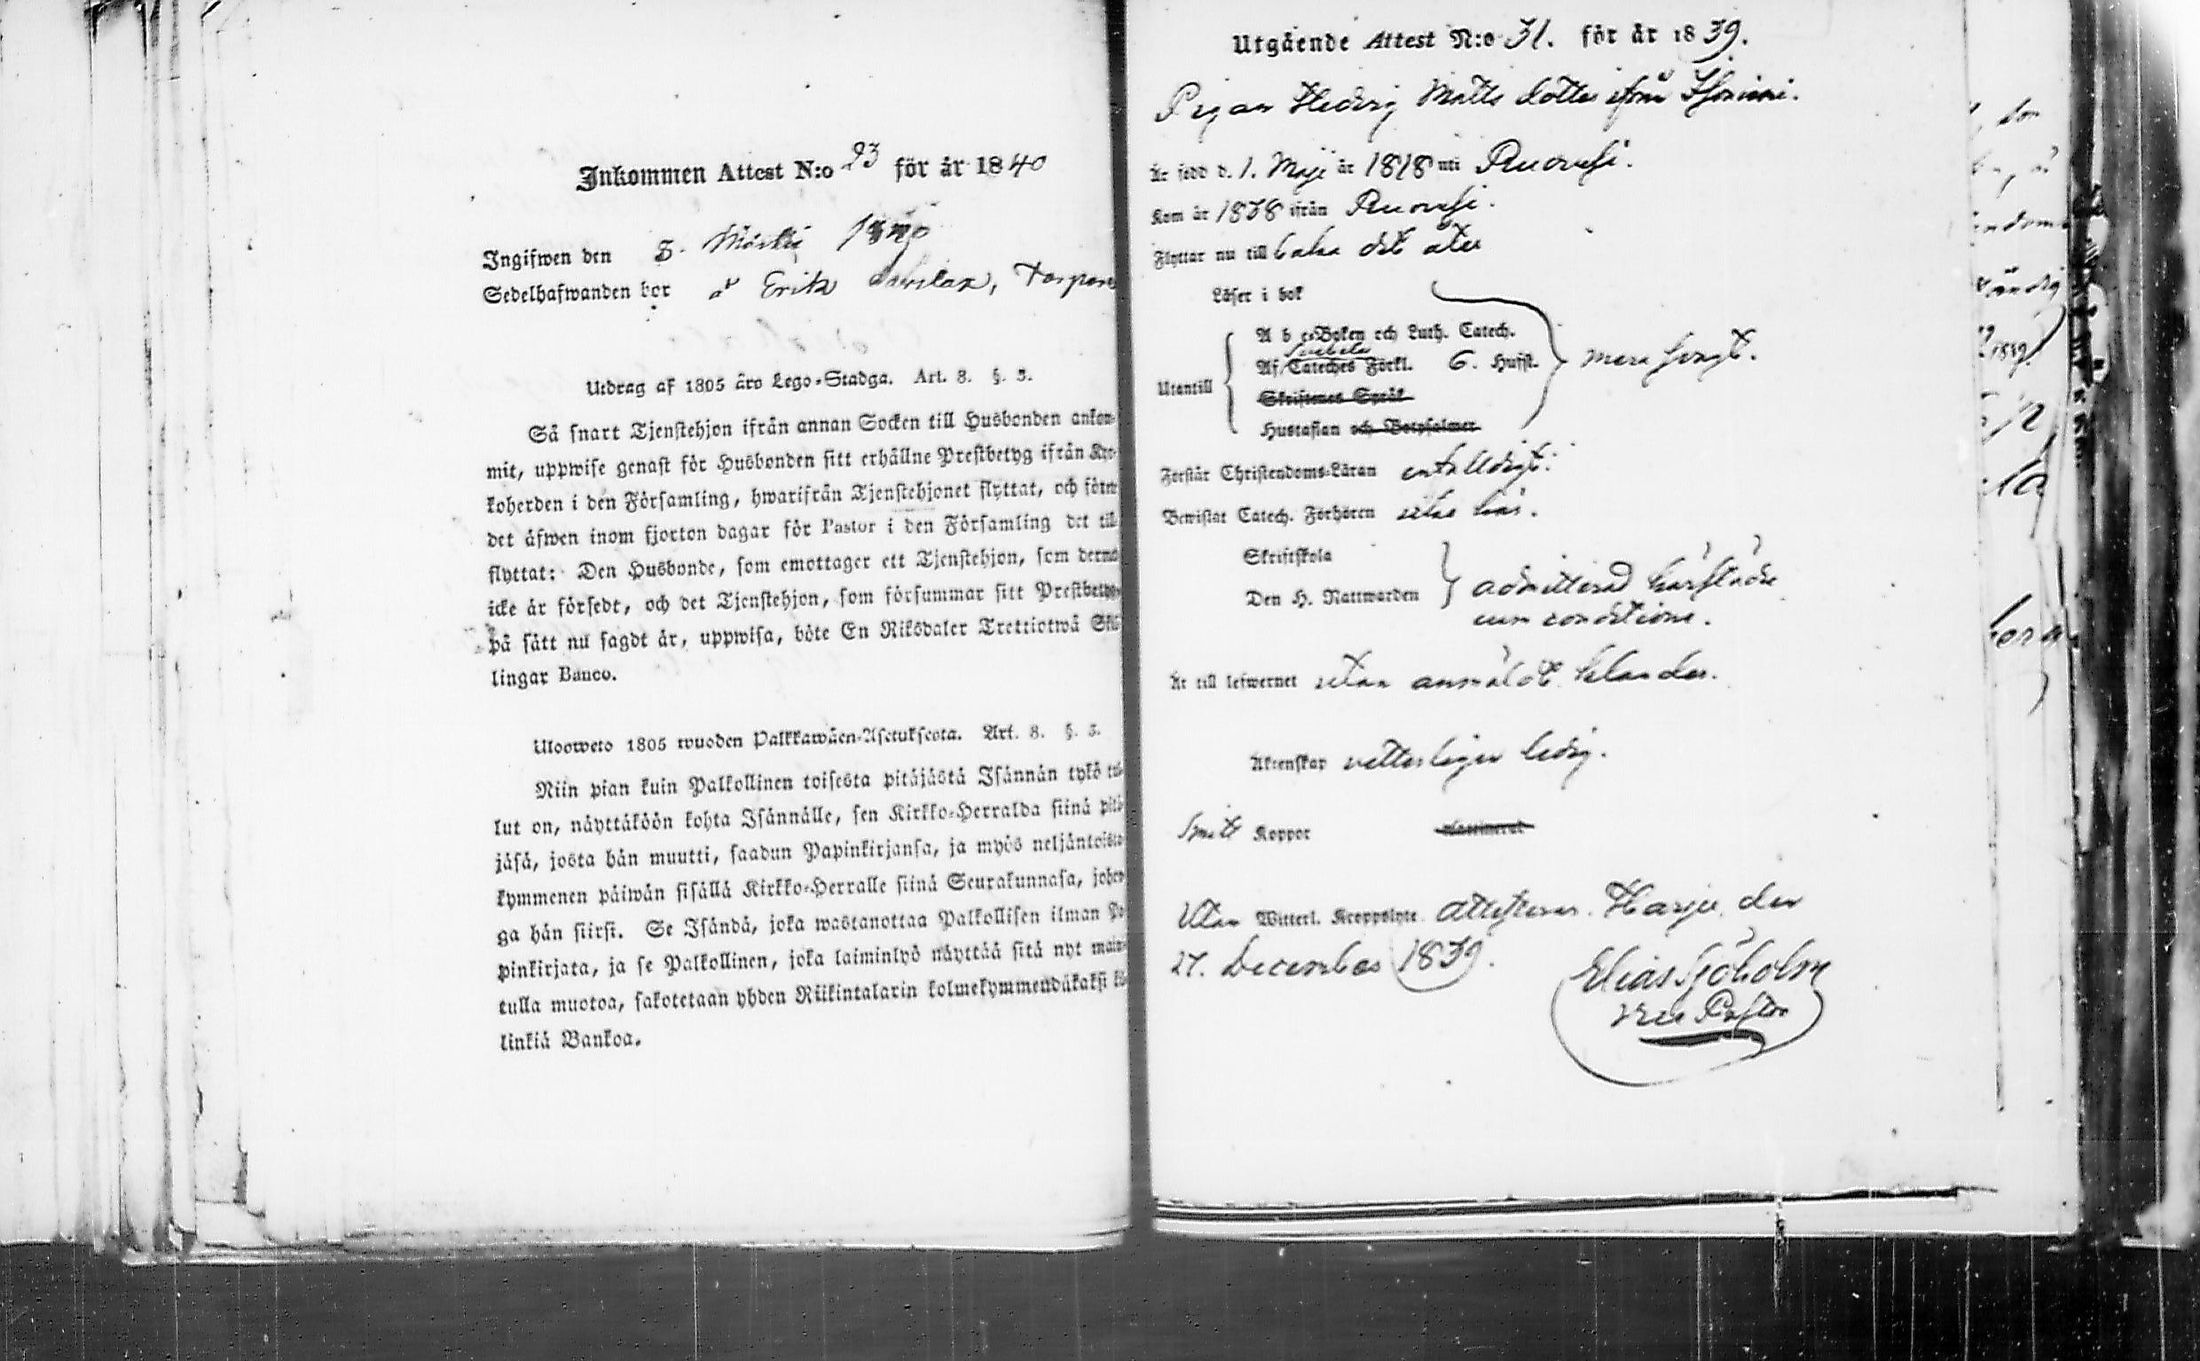 Inkommen Attest N:o 23 för år 1840
Ingifwen den 3. Martij 1840
Sedelhafwanden bor å Erik Torpare
Utdrag af 1805 års Lego-Stadga. Art. 8. §. 5.
Så snart Tjenstehjon ifrån annan Socken till Husbonden ankom-
mit, uppwise genast för Husbonden sitt erhållne Prestbetyg ifrån Kyr-
koherden i den Församling, hwarifrån Tjenstehjonet flyttat, och förete
det äfwen inom fjorton dagar för Pastor i den Församling det till-
flyttat: Den Husbonde, som emottager ett Tjenstehjon, som dermed
icke är försedt, och det Tjenstehjon, som försummar sitt Prestbetyg,
på sätt nu sagdt är, uppwisa, böte En Riksdaler Trettiotwå Skil-
lingar Banco.
Ulooweto 1805 wuoden Palkkawäen-Asetuksesta. Art. 8. §. 5.
Niin pian kuin Palkollinen toisesta pitäjästä Isännän tykö tul-
lut on, näyttäköön kohta Isännälle, sen Kirkko-Herralda siinä pitä-
jäsä, josta hän muutti, saadun Papinkirjansa, ja myös neljäntoista-
kymmenen päiwän sisällä Kirkko-Herralle siinä Seurakunnasa, johon-
ga hän siirsi. Se Isändä, joka wastanottaa Palkollisen ilman Pa-
pinkirjata, ja se Palkollinen, joka laiminlyö näyttää sitä nyt mainit-
tulla muotoa, sakotetaan yhden Riikintalarin kolmekymmendäkaksi kil-
linkiä Bankoa.
Utgående Attest N:o 31. för år 1839.
Pigan Hedvig Matts dotter ifrån
Är född d. 1. Maji år 1818 uti Ruovesi.
Kom år 1838 ifrån Ruovesi.
Flyttar nu till baka dit åter
Läser i bok
Utantill
A b c-Boken och Luth. Catech.
Af Svebelii Cateches Förkl. 6. Hufst.
Skriftenes Språk
Hustaflan och Botpsalmer
mera svagt.
Förstår Christendoms-Läran enfalldigt.
Bewistat Catech. Förhören här.
Skriftskola
Den H. Nattwarden
admitterad härstädes
cum conditione.
Är till lefwernet utan anmäldt klander.
Äktenskap vetterligen ledig.
Haft Koppor Vaccinerad
Utan Witterl. Kroppslyte attesterar. Harju den
27. December 1839.
Elias Sjöholm
Vice Pastor